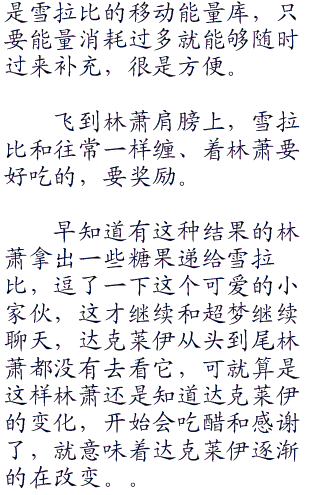 是雪拉比的移动能量库，只
要能量消耗过多就能够随时
过来补充，很是方便。
飞到林萧肩膀上，雪拉
比和往常一样缠、着林萧要
好吃的，要奖励。
早知道有这种结果的林
萧拿出一些糖果递给雪拉
比，逗了一下这个可爱的小
家伙，这才继续和超梦继续
聊天，达克莱伊从头到尾林
萧都没有去看它，可就算是
这样林萧还是知道达克莱伊
的变化，开始会吃醋和感谢
了，就意味着达克莱伊逐渐
的在改变。。